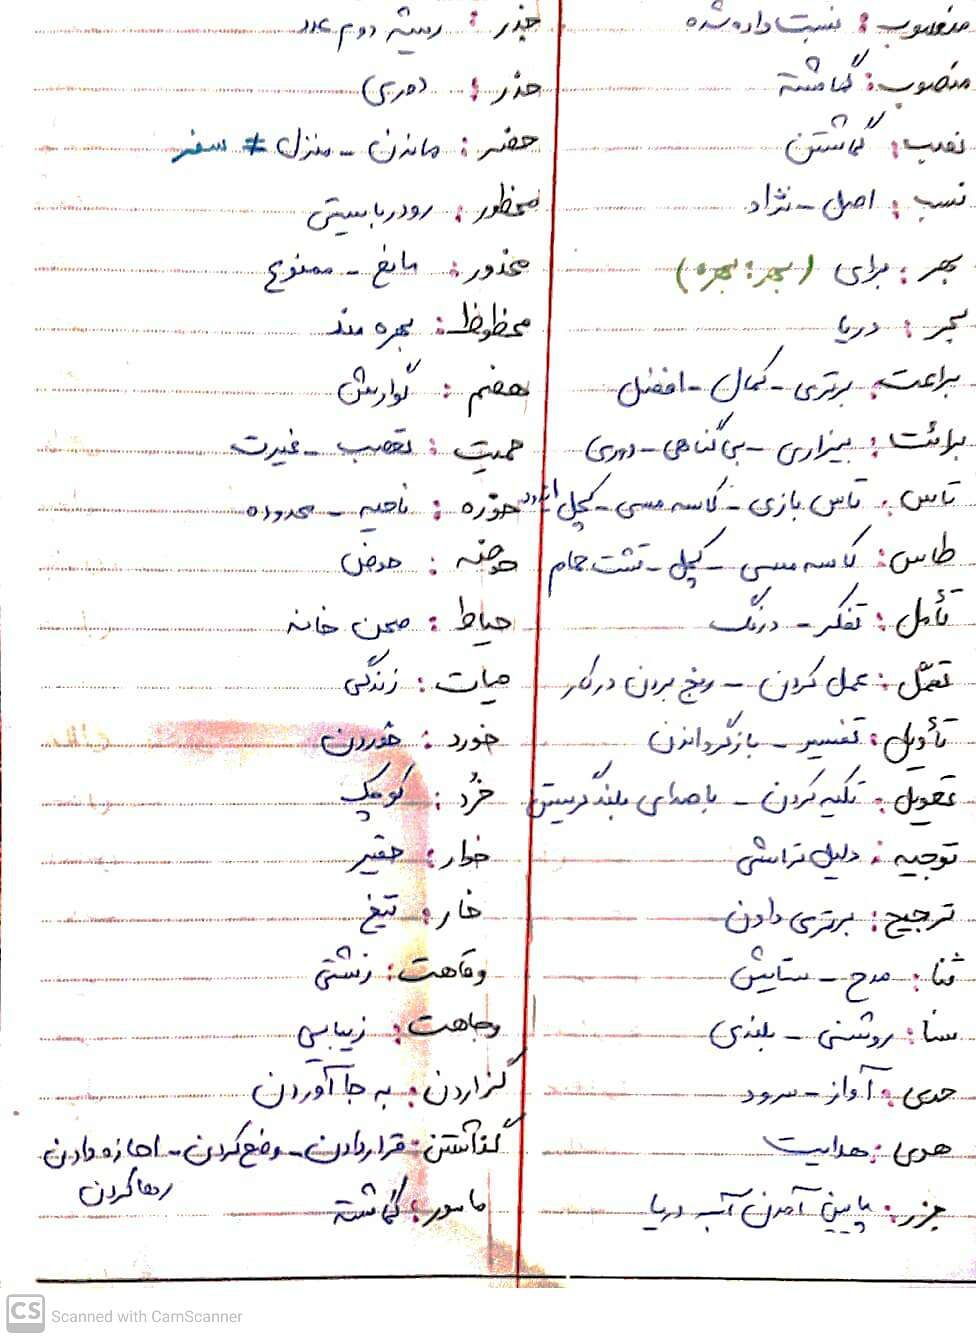 منسوب: نسبت داده شده
منصوب: گماشته
نصب: گماشتن
نسب: اصل - نژاد
بهر: برای (بهر: بهره)
بحر: دریا
براعت: برتری - کمال - افضل
برائت: بیزاری - بی گناهی - دوری
تاس: تاس بازی - کاسه مسی - کچل
طاس: کاسه مسی - کچل - تشت حمام
تأمل: تفکر - درنگ
تعمّل: عمل کردن - رنج بردن در کار
تأویل: تفسیر - بازگرداندن
تعویل: تکیه کردن - با صدای بلند گریستن
توجیه: دلیل تراشی
ترجیح: برتری دادن
ثنا: مدح - ستایش
سنا: روشنی - بلندی
حدی: آواز - سرود
هدی: هدایت
جزر: پایین آمدن آب دریا
جذر: ریشه دوم عدد
حذر: دوری
حضر: ماندن - منزل ≠ سفر
محظور: رودربایستی
محذور: مانع - ممنوع
محظوظ: بهره مند
هضم: گوارش
حمیت: تعصب - غیرت
حوزه: ناحیه - محدوده
حوضه: حوض
حیاط: صحن خانه
حیات: زندگی
خورد: خوردن
خُرد: کوچک
خوار: حقیر
خار: تیغ
وقاهت: زشتی
وجاهت: زیبایی
گزاردن: به جا آوردن
گذاشتن: قرار دادن - وضع کردن - اجازه دادن
رها کردن
مامور: گماشته
CS Scanned with CamScanner